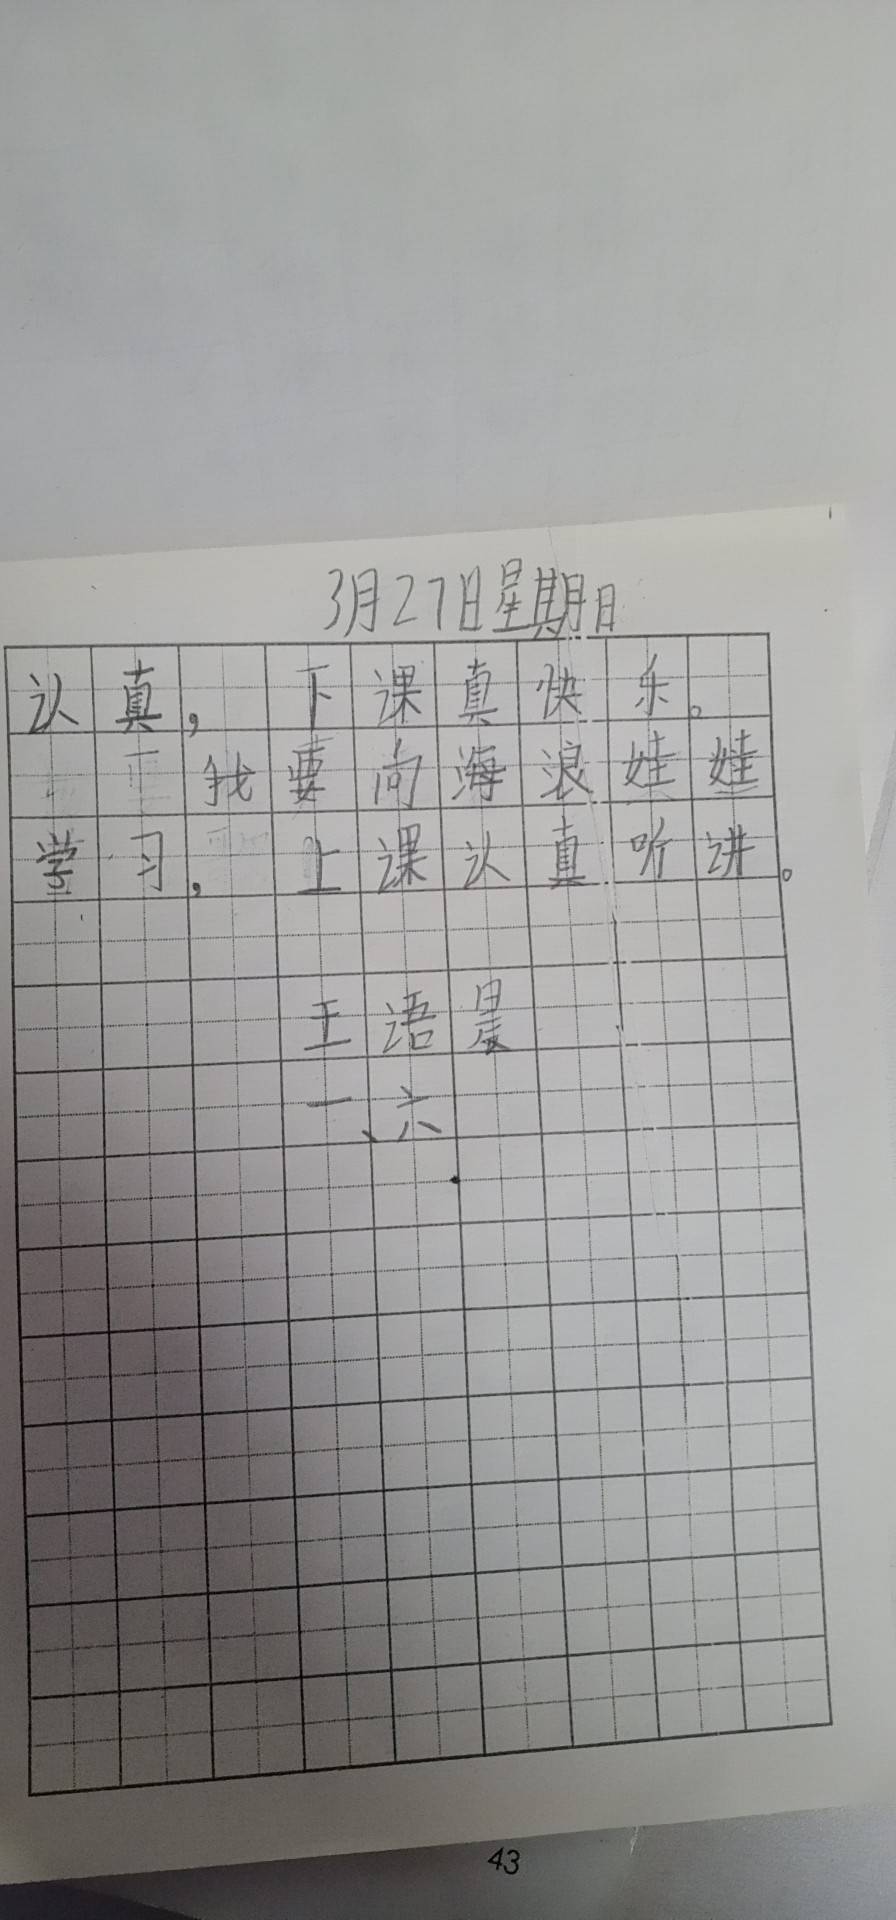 3月27日星期日
认真，下课真快乐。
我要向海浪娃娃
学习，上课认真听讲。
王语晨
一、六
43